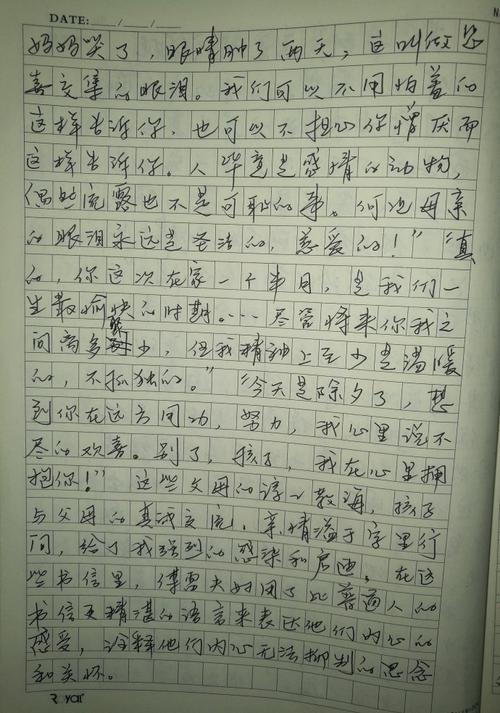 DATE: / /
妈妈哭了，眼睛肿了两天，这叫做悲
喜交集的眼泪。我们可以不用怕羞的
这样告诉你，也可以不担心你憎厌而
这样告诉你。人毕竟是感情的动物，
偶然流露也不是可耻的事。何况母亲
的眼泪永远是圣洁的，慈爱的！”“真
的，你这次在家一个半月，是我们一
生最愉快的时期。…尽管将来你我之
间离多聚少，但我精神上至少是温暖
的，不孤独的。”“今天是除夕了，想
到你在远方用功，努力，我心里说不
尽的欢喜。别了，孩子，我在心里拥
抱你！”这些父母的谆谆教诲，孩子
与父母的真诚交流，亲情溢于字里行
间，给了我强烈的感染和启迪。在这
些书信里，傅雷夫妇用了比普通人的
书信更精湛的语言来表达他们内心的
感受，诠释他们内心无法抑制的思念
和关怀。